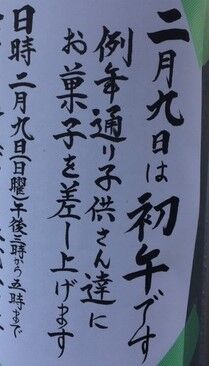 二月九日は初午です
例年通り子供さん達に
お菓子を差し上げます
日時 二月九日(日曜)午後三時から五時まで